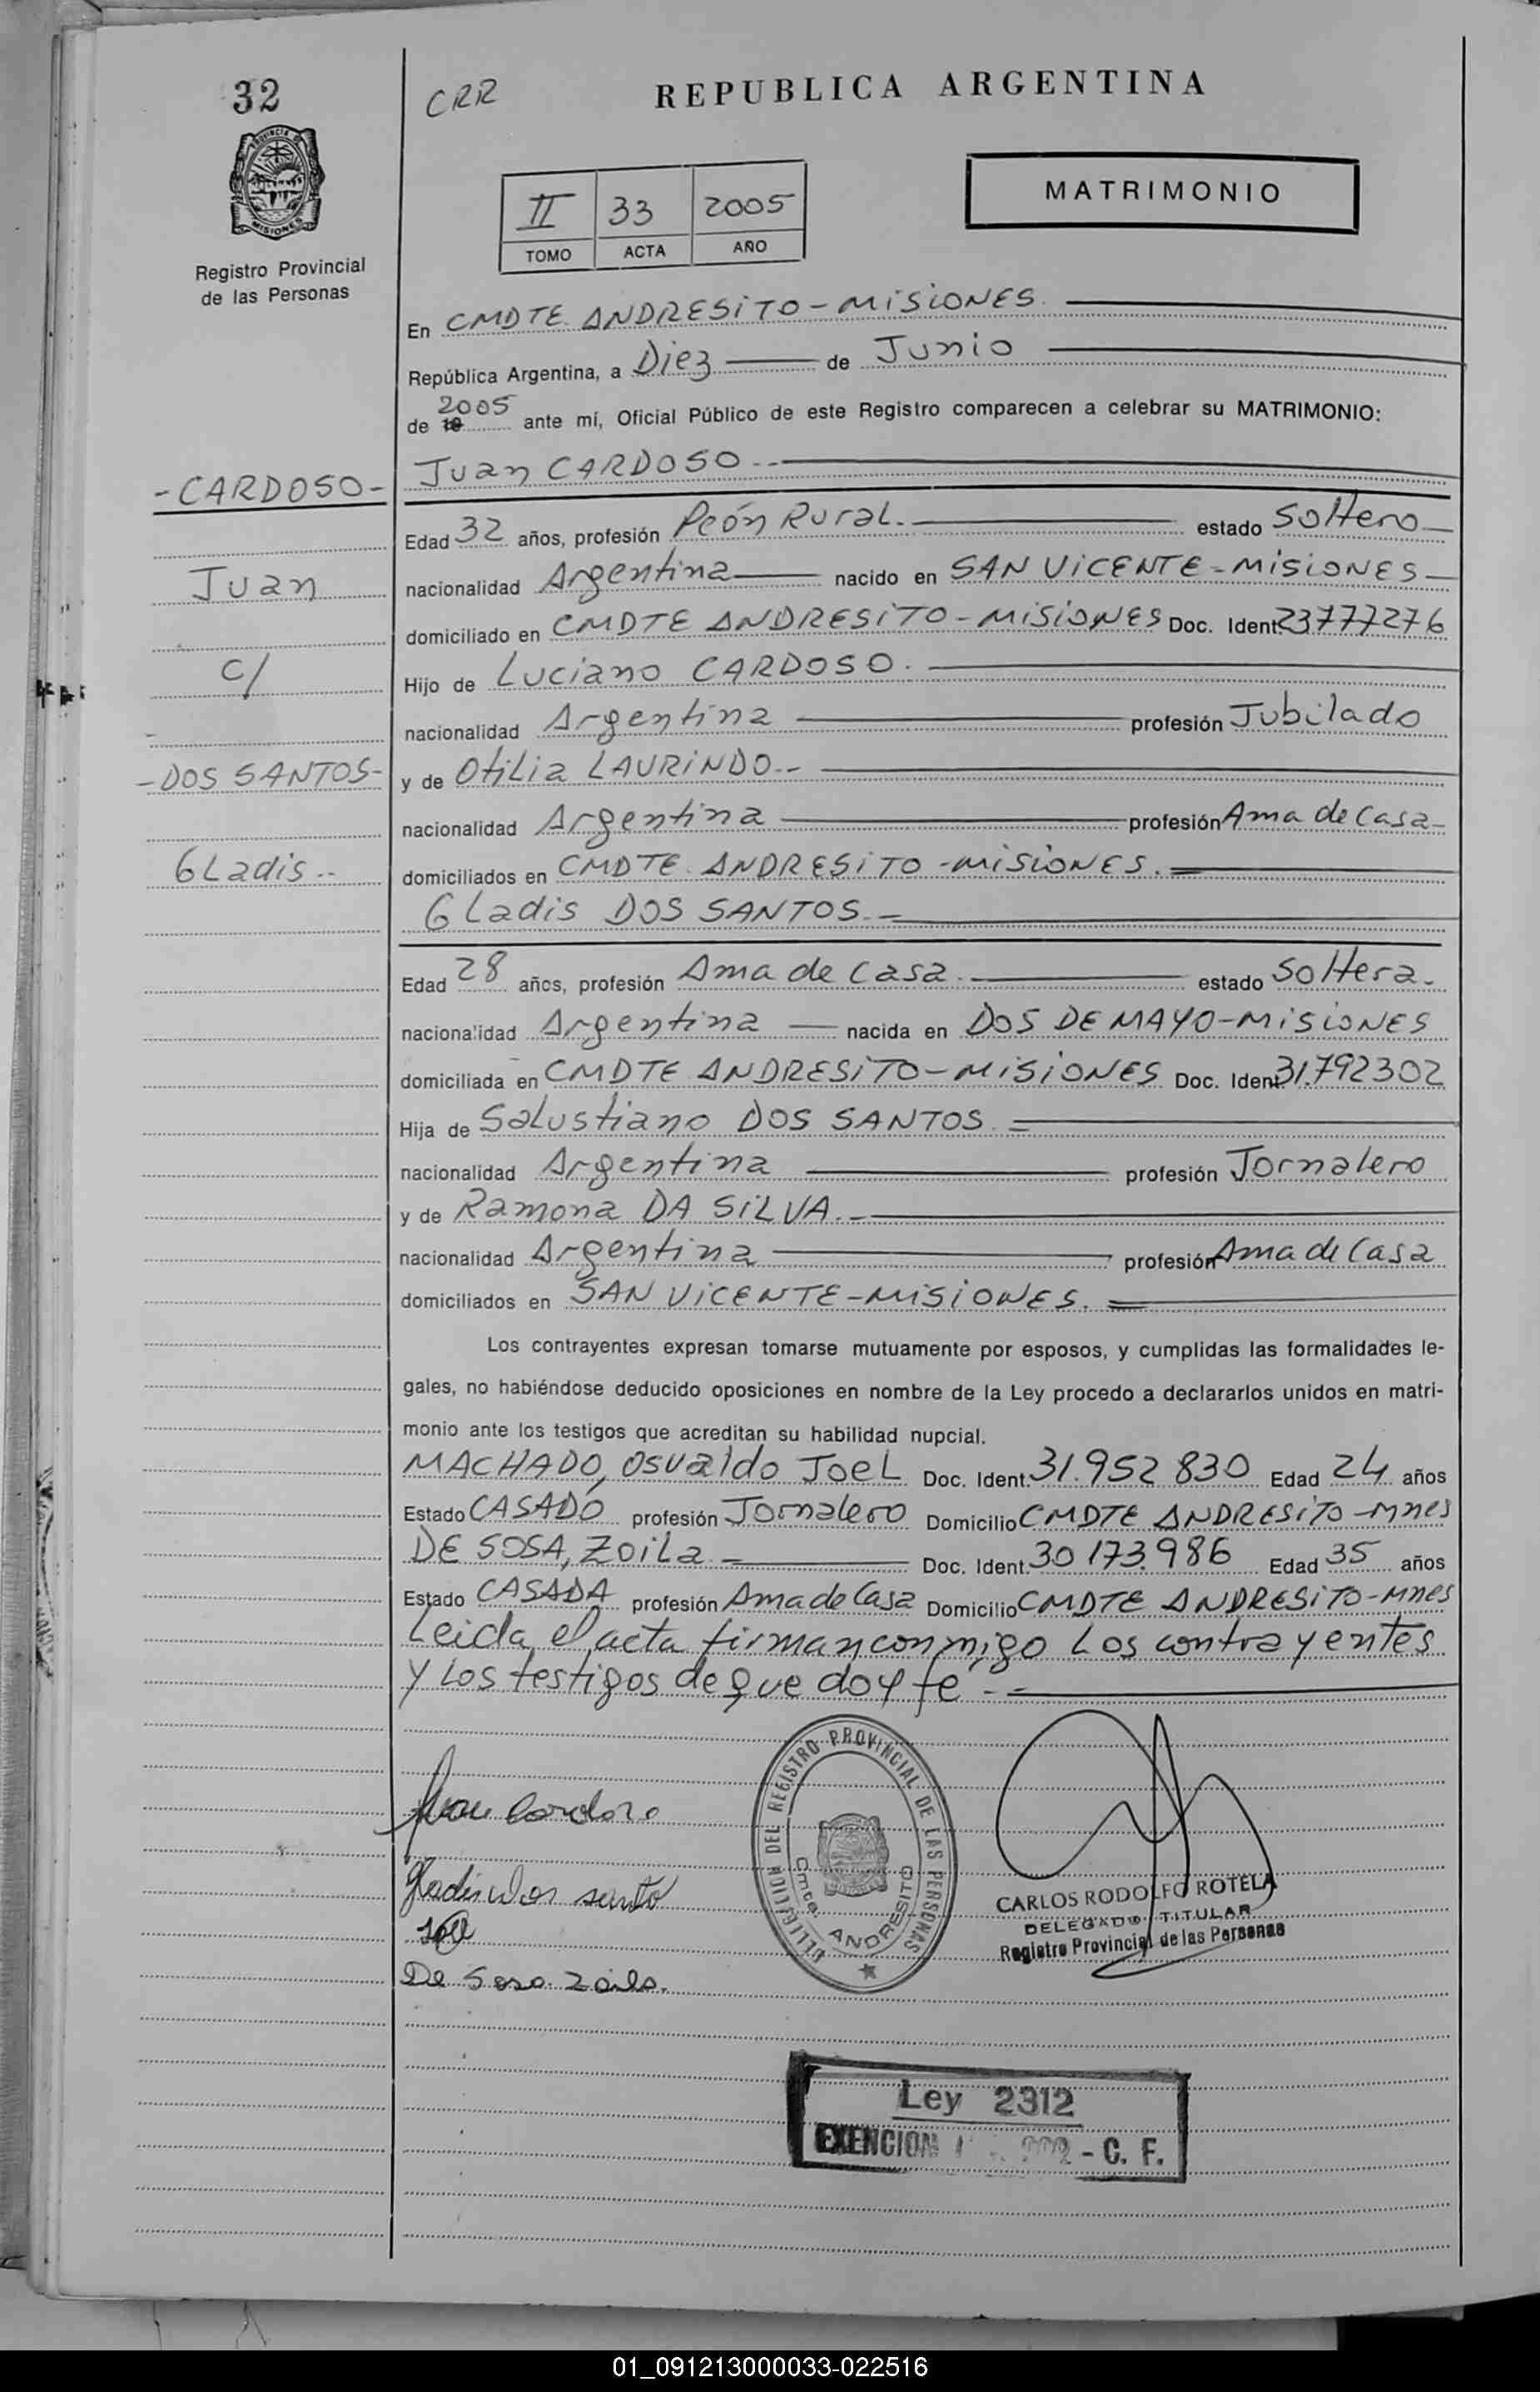 32
CRR
REPUBLICA ARGENTINA
PROVINCIA DE
MISIONES
Registro Provincial
de las Personas
II 33 2005
TOMO ACTA AÑO
MATRIMONIO
En CMDTE ANDRESiTO - MiSiONES.
República Argentina, a Diez de Junio
2005
de 19 ante mí, Oficial Público de este Registro comparecen a celebrar su MATRIMONIO:
Juan CARDOSO.--
- CARDOSO -
Edad 32 años, profesión Peón Rural. estado Soltero
Juan
nacionalidad Argentina nacido en SAN ViCENTE - MiSiONES
domiciliado en CMDTE ANDRESiTO - MiSiONES Doc. Ident. 23777276
c/
Hijo de Luciano CARDOSO.
nacionalidad Argentina profesión Jubilado
- DOS SANTOS -
y de Otilia LAURiNDO.--
nacionalidad Argentina profesión Ama de Casa-
GLadis--
domiciliados en CMDTE. ANDRESiTO - MiSiONES.
GLadis DOS SANTOS.-
Edad 28 años, profesión Ama de Casa. estado Soltera.
nacionalidad Argentina nacida en DOS DE MAYO - MiSiONES
domiciliada en CMDTE ANDRESiTO - MiSiONES Doc. Ident. 31.792302
Hija de Salustiano DOS SANTOS.
nacionalidad Argentina profesión Jornalero
y de Ramona DA SiLVA.-
nacionalidad Argentina profesión Ama de Casa
domiciliados en SAN ViCENTE - MiSiONES.
Los contrayentes expresan tomarse mutuamente por esposos, y cumplidas las formalidades le-
gales, no habiéndose deducido oposiciones en nombre de la Ley procedo a declararlos unidos en matri-
monio ante los testigos que acreditan su habilidad nupcial.
MACHADO, Osvaldo Joel Doc. Ident. 31.952 830 Edad 24 años
Estado CASADO profesión Jornalero Domicilio CMDTE ANDRESiTO - Mnes
DE SOSA, Zoila.- Doc. Ident. 30 173.986 Edad 35 años
Estado CASADA profesión Ama de Casa Domicilio CMDTE ANDRESiTO - Mnes
Leida el acta firman conmigo Los contrayentes
y Los testigos de que doy fe.--
Juan Cardoso
Gladis dos santo
De Sosa Zoila.
DELEGACION DEL REGISTRO PROVINCIAL DE LAS PERSONAS
Cmte. ANDRESITO
CARLOS RODOLFO ROTELA
DELEGADO TITULAR
Registro Provincial de las Personas
Ley 2312
EXENCION - C. F.
01_091213000033-022516